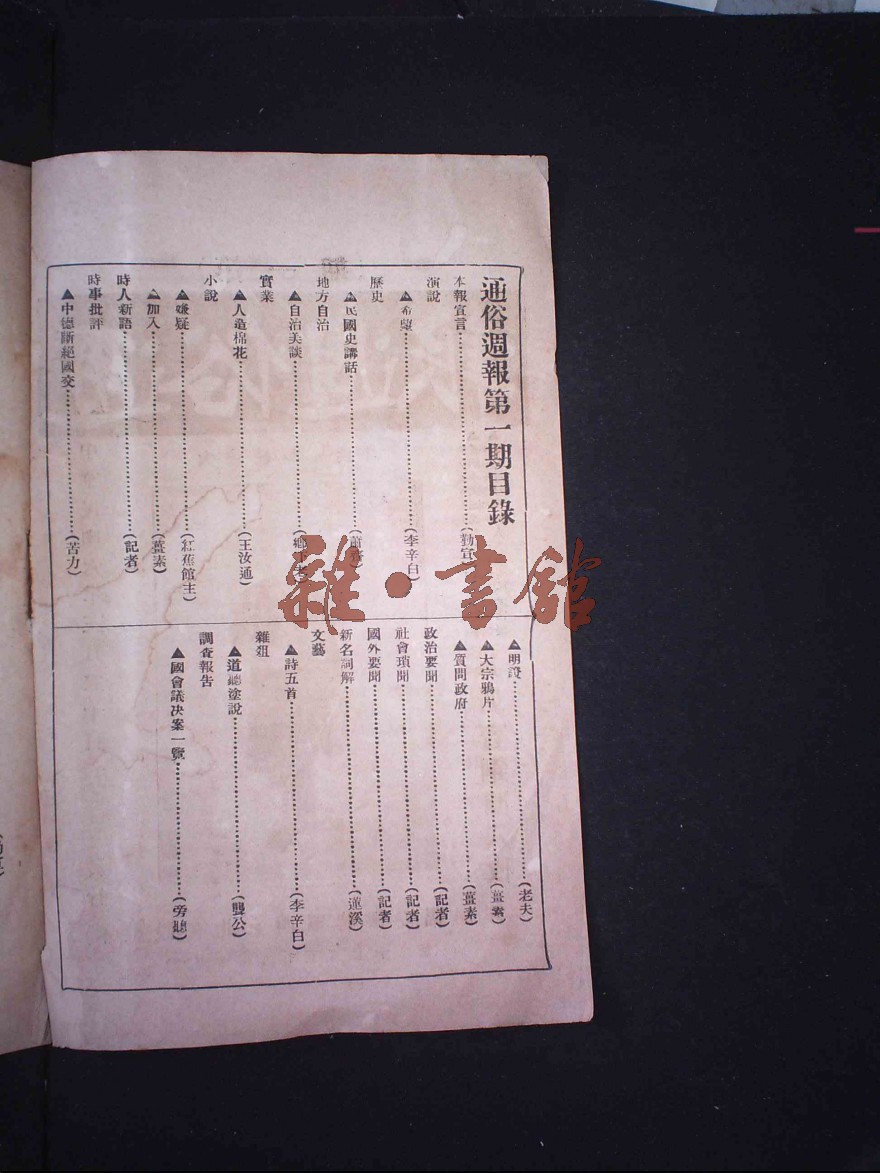 通俗週報第一期目錄
本報宣言……(勤宣
演說
▲希望……(李辛白)
歷史
▲民國史講話……
地方自治
▲自治美談……
實業
▲人造棉花……(王汝通)
小說
▲嫌疑……(紅蕉館主)
▲加入……(薑素)
時人新語……(記者)
時事批評
▲中德斷絕國交……(苦力)
▲明證……(老夫)
▲大宗鴉片……(薑素)
▲質問政府……(薑素)
政治要聞……(記者)
社會瑣聞……(記者)
國外要聞……(記者)
新名詞解……(蓮溪)
文藝
▲詩五首……(李辛白)
雜俎
▲道聽塗說……(聾公)
調查報告
▲國會議决案一覽……(旁聽)
雜·書館